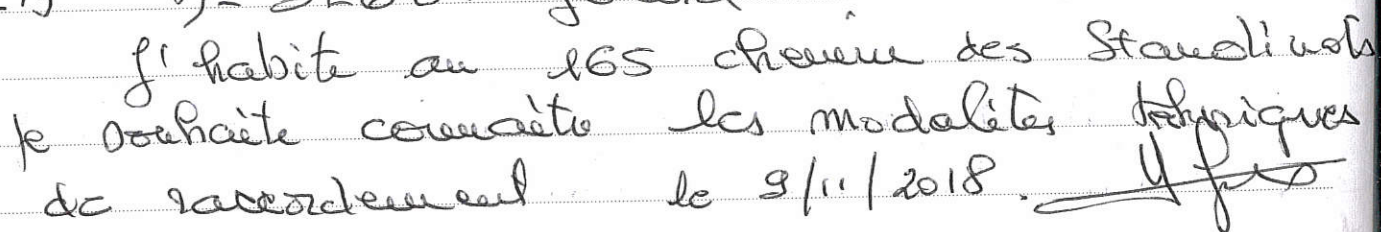 J'habite au 165 chemin des
je souhaite connaître les modalités techniques
de raccordement le 9/11/2018.